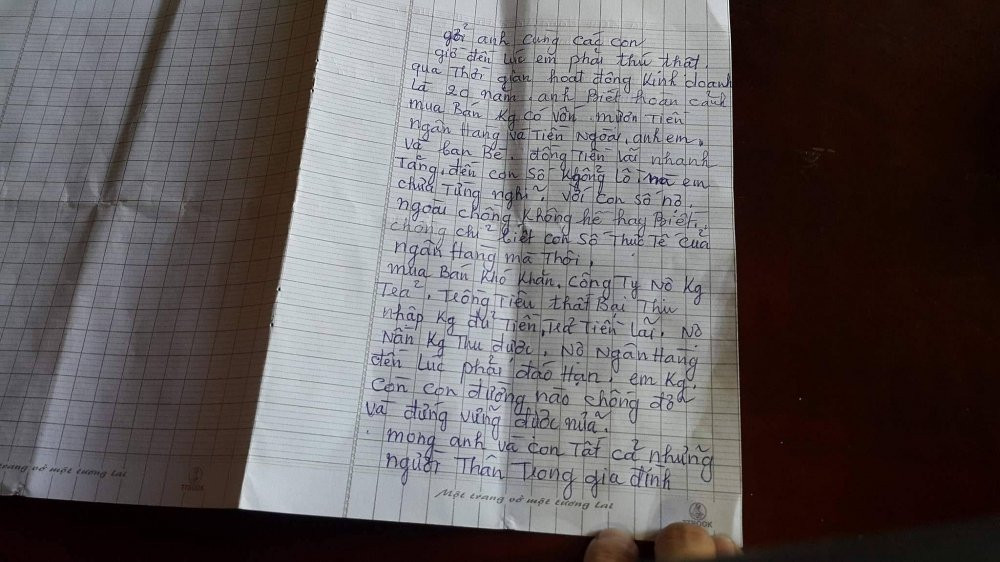 gởi anh cùng các con
giờ đến lúc em phải thú thật.
qua Thời gian hoạt động Kinh doanh
là 20 năm. anh Biết hoàn cảnh
mua Bán Kg có vốn. mượn Tiền
ngân Hàng và Tiền Ngoài, anh em,
và bạn Bè. đồng Tiền lãi nhanh
Tăng, đến con số Khổng lồ mà em
chưa Từng nghĩ, với con số nợ.
ngoài chồng không hề hay Biết,
chồng chỉ biết con số Thực Tế của
ngân Hàng mà Thôi.
mua Bán Khó Khăn. Công Ty Nợ Kg
Trả, Trồng Tiêu thất Bại Thu
nhập Kg đủ Tiền Trả Tiền lãi. Nợ
Nần Kg Thu được. Nợ Ngân Hàng
đến Lúc phải đáo Hạn. em Kg
còn con đường nào chống đỡ
và đứng vững được nữa.
mong anh và con Tất cả những
người Thân Trong gia đình
Một trang vở một tương lai
TTBOOK
trang vở một tương lai
TTBOOK